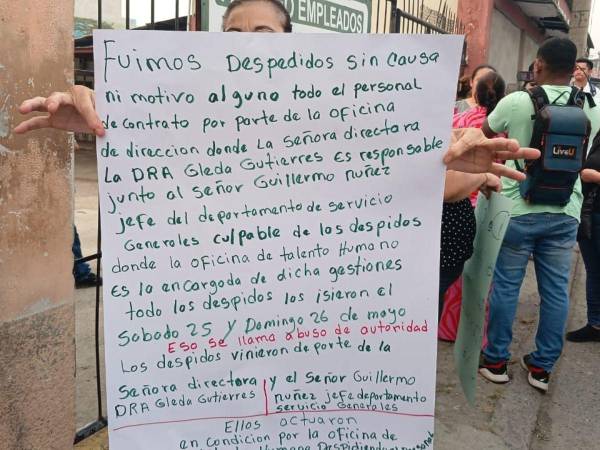 EMPLEADOS
Fuimos Despedidos sin causa
ni motivo alguno todo el personal
de contrato por parte de la oficina
de direccion donde la señora directara
La DRA Gleda Gutierres es responsable
junto al señor Guillermo nuñez
jefe del departamento de servicio
Generales culpable de los despidos
donde la oficina de talento Humano
Es la encargoda de dicha gestiones
todo los despidos los isieron el
Sabodo 25 y Domingo 26 de mayo
Eso se llama abuso de autoridad
Los despidos vinieron de porte de la
Señora directara y el señor Guillermo
DRA Gleda Gutierres nuñez jefe departamento
servicio Generales
Ellos actuaron
en condicion por la oficina de
Humano Despidiendo
LiveU